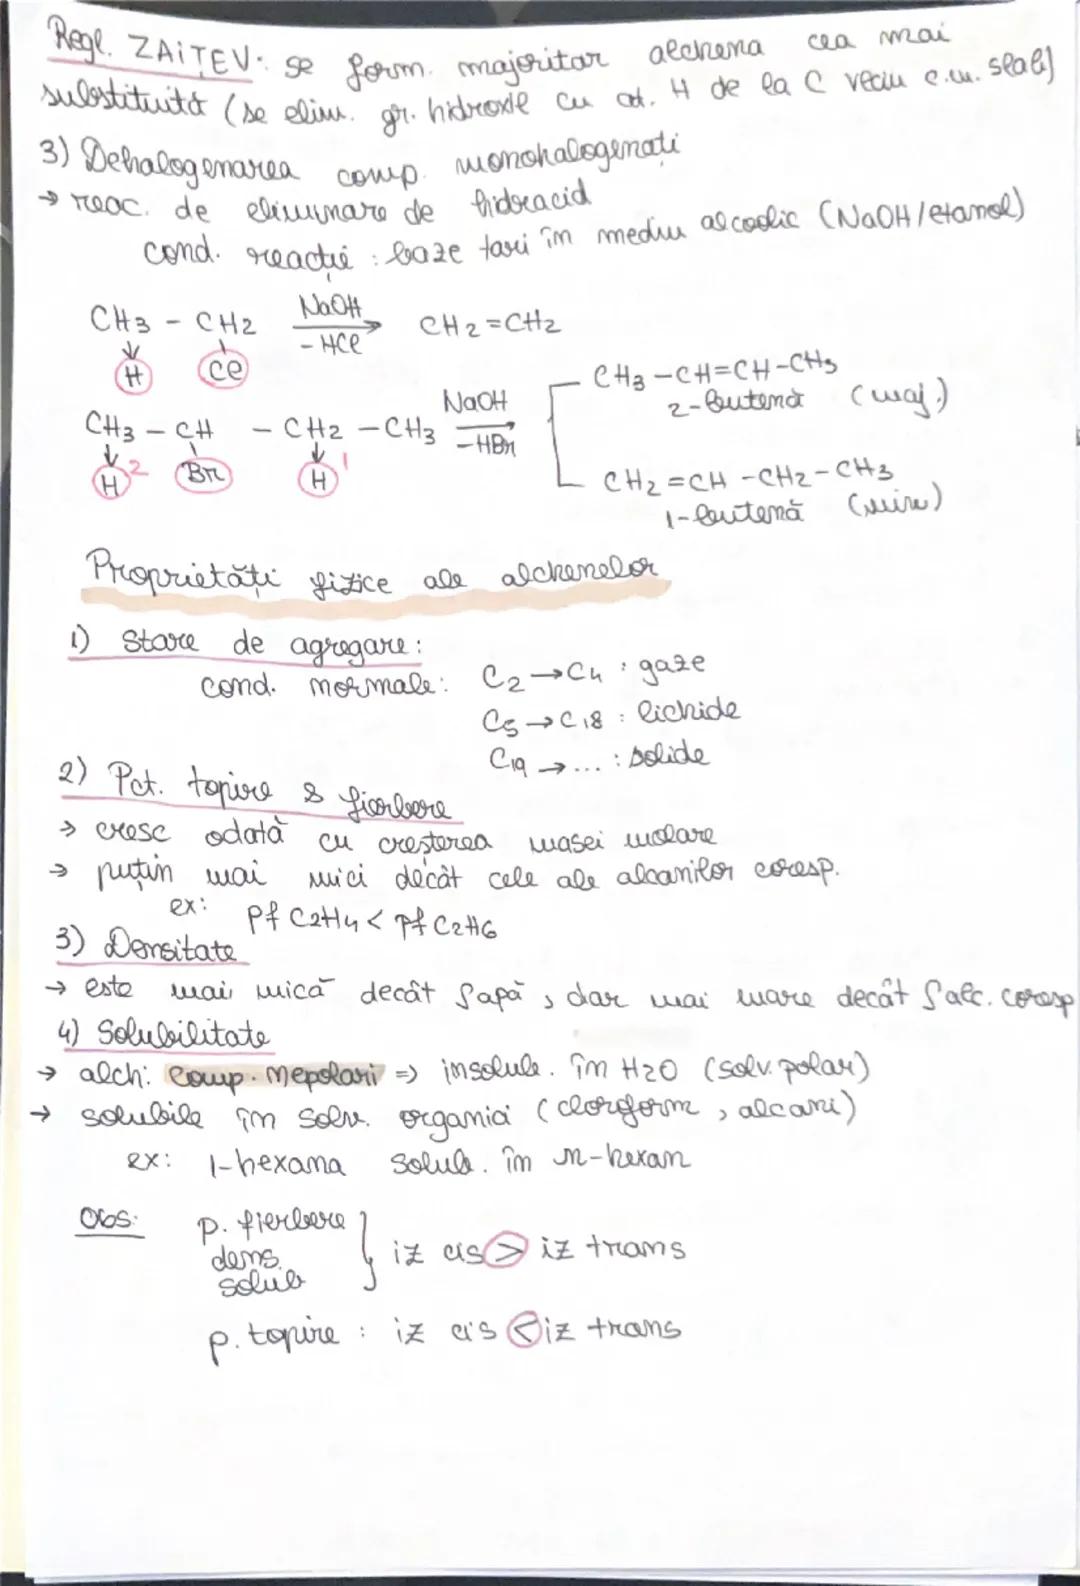 Regl. ZAIȚEV: se form. majoritar alchena cea mai
substituită (se elim. gr. hidroxil cu at. H de la C vecin c.m. slab)
3) Dehalogenarea comp. monohalogenați
→ reac. de eliminare de hidracid
cond. reacție : baze tari în mediu alcoolic (NaOH/etanol)
CH3 - CH2 NaOH → - HCl CH2=CH2
H Cl
CH3 - CH - CH2 - CH3 NaOH → -HBr
H 2 Br H 1
CH3 - CH=CH-CH3
2-butenă (maj.)
CH2=CH-CH2-CH3
1-butenă (min)
Proprietăți fizice ale alchenelor
1) Stare de agregare:
cond. normale: C2→C4 : gaze
C5→C18 : lichide
C19→... : solide
2) Pct. topire & fierbere
→ cresc odată cu creșterea masei molare
→ puțin mai mici decât cele ale alcanilor coresp.
ex: pf C2H4 < pf C2H6
3) Densitate
→ este mai mică decât ρapă, dar mai mare decât ρalc. coresp
4) Solubilitate
→ alch: comp. nepolari => insolub. în H2O (solv. polar)
→ solubile în solv. organici (cloroform, alcani)
ex: 1-hexena solub. în n-hexan
Obs: p. fierbere
dens.
solub
} iz cis > iz trans
p. topire : iz cis < iz trans